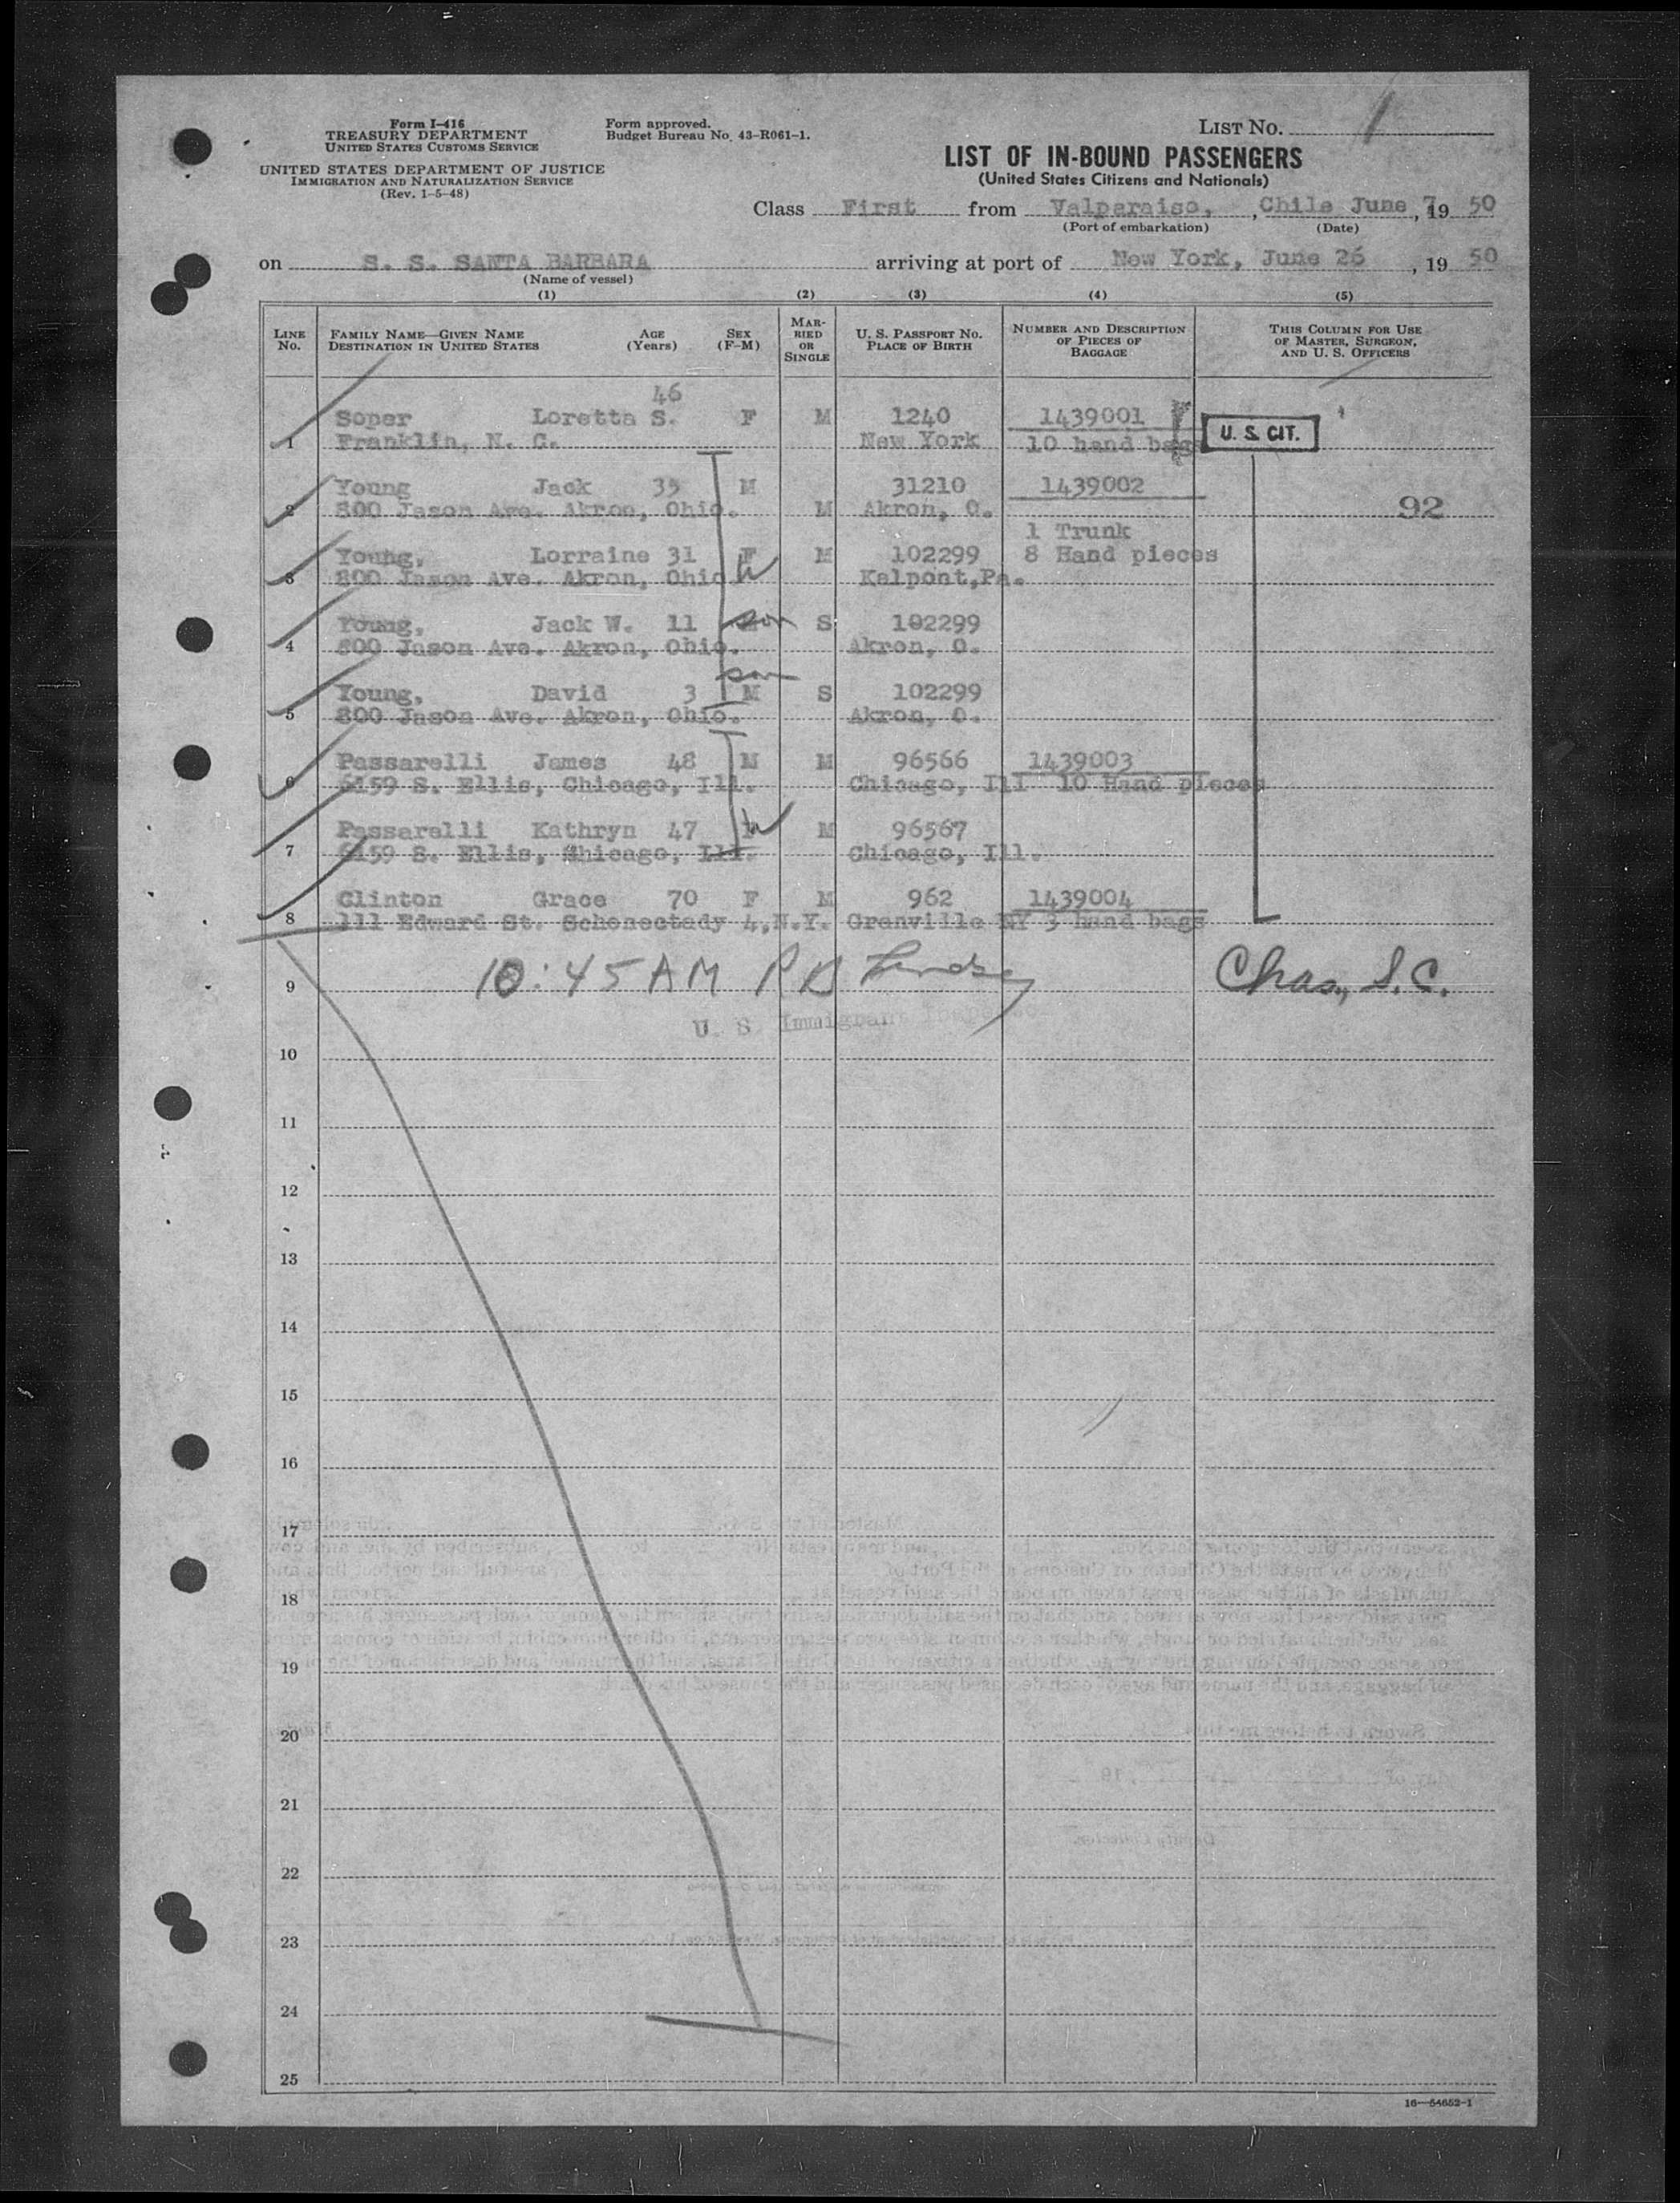 Form I-416
TREASURY DEPARTMENT
UNITED STATES CUSTOMS SERVICE
UNITED STATES DEPARTMENT OF JUSTICE
IMMIGRATION AND NATURALIZATION SERVICE
(Rev. 1-5-48)
Form approved.
Budget Bureau No. 43-R061-1.
LIST NO. 1
LIST OF IN-BOUND PASSENGERS
(United States Citizens and Nationals)
Class First from Valparaiso, , Chile June 7, 19 50
(Port of embarkation) (Date)
on S. S. SANTA BARBARA arriving at port of New York, June 26, 19 50
(Name of vessel)
(1) (2) (3) (4) (5)
LINE NO.
FAMILY NAME—GIVEN NAME AGE SEX
DESTINATION IN UNITED STATES (Years) (F-M)
MARRIED OR SINGLE
U. S. PASSPORT NO.
PLACE OF BIRTH
NUMBER AND DESCRIPTION OF PIECES OF BAGGAGE
THIS COLUMN FOR USE OF MASTER, SURGEON, AND U. S. OFFICERS
46
Soper Loretta S. F M 1240 1439001
1 Franklin, N. C. New York 10 hand bags U. S. CIT.
Young Jack 35 M 31210 1439002
2 800 Jason Ave. Akron, Ohio. M Akron, O. 92
1 Trunk
Young, Lorraine 31 F M 102299 8 Hand pieces
3 800 Jason Ave. Akron, Ohio W Kelpont, Pa.
Young, Jack W. 11 son S 102299
4 800 Jason Ave. Akron, Ohio. Akron, O.
son
Young, David 3 M S 102299
5 800 Jason Ave. Akron, Ohio. Akron, O.
Passarelli James 48 M M 96566 1439003
6 6159 S. Ellis, Chicago, Ill. Chicago, Ill 10 Hand pieces
Passarelli Kathryn 47 W M 96567
7 6159 S. Ellis, Chicago, Ill. Chicago, Ill.
Clinton Grace 70 F M 962 1439004
8 111 Edward St. Schenectady 4, N.Y. Granville NY 3 hand bags
9 10:45 AM Chas., S.C.
U. S. Immigrant
10
11
12
13
14
15
16
17
18
19
20
21
22
23
24
25
16—54652-1